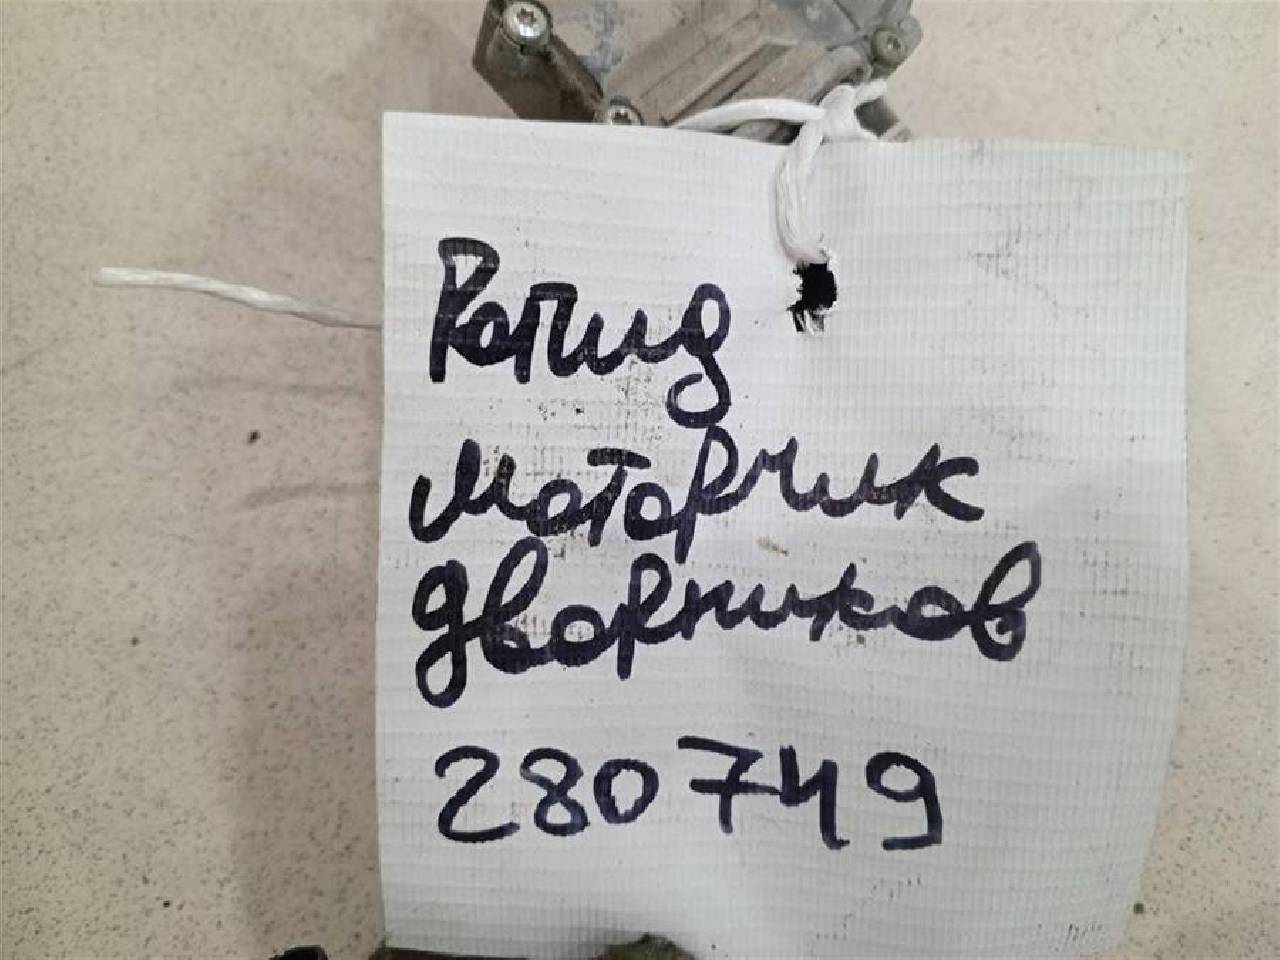 Рапид
моторчик
дворников
280749